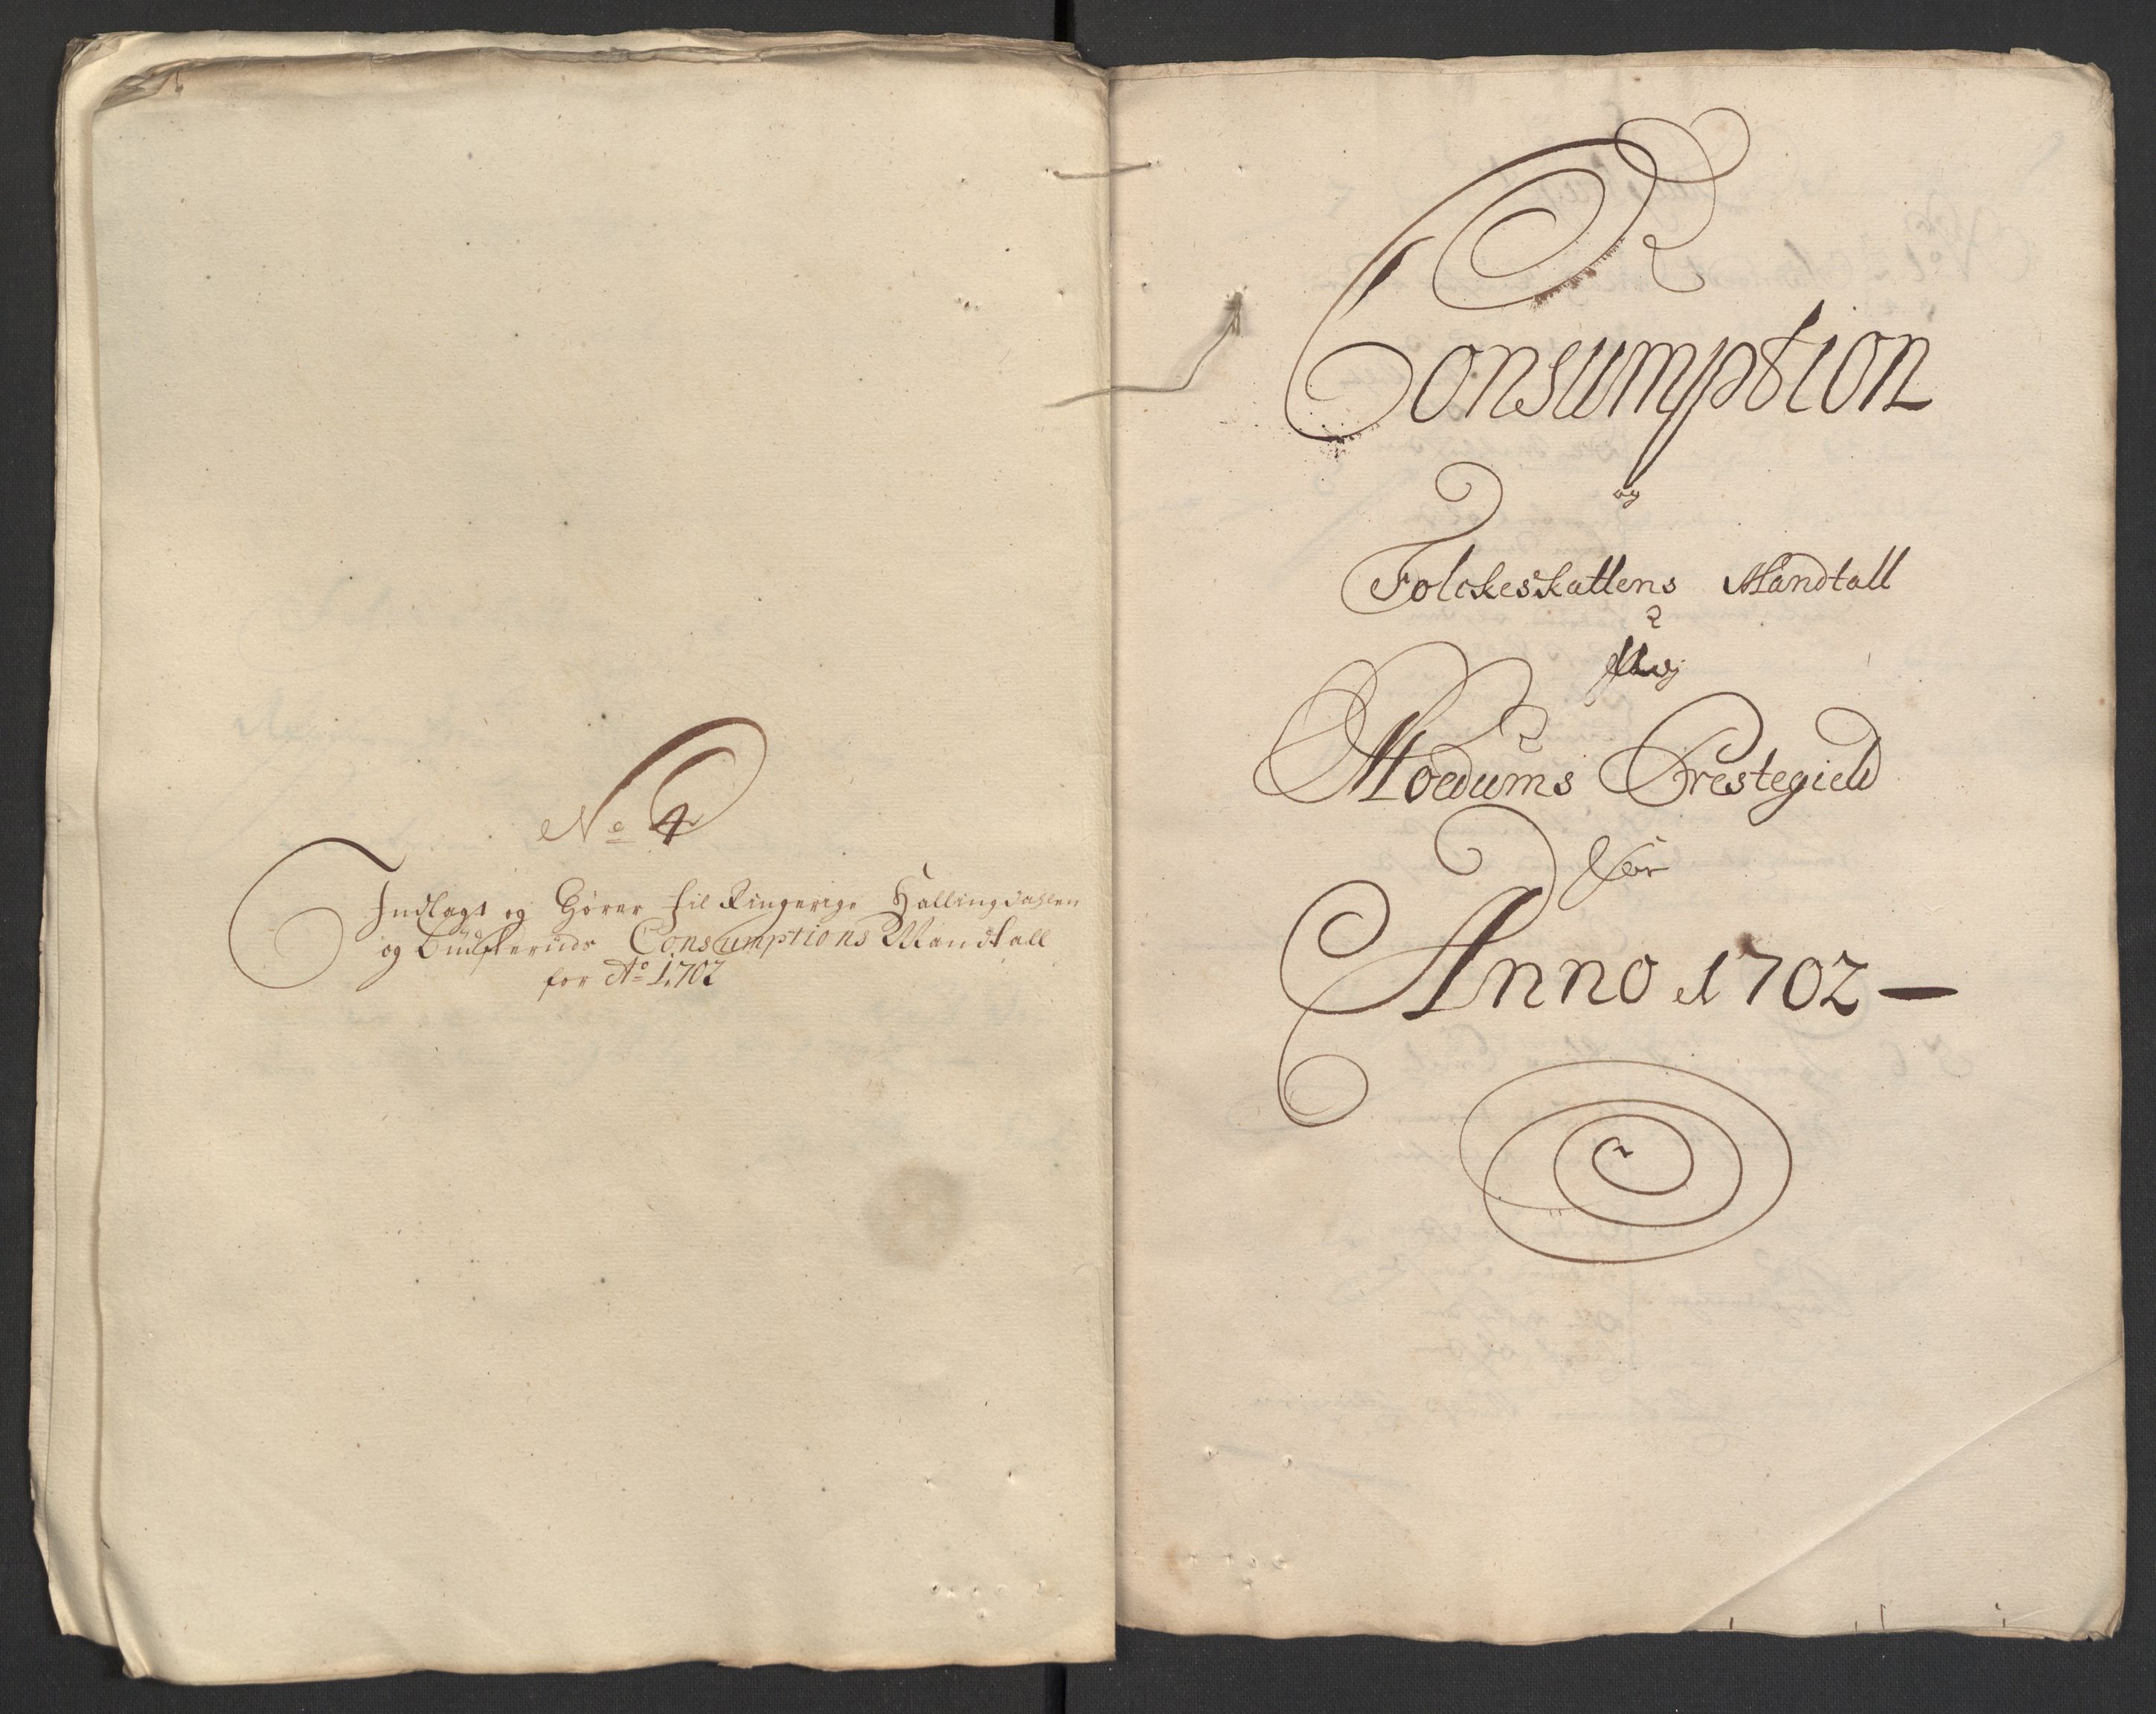 No 4
Indlagt og Hører til Ringerige Hallingdahlen
og Buusteruds Consumptions Mandtall
for Ao 1702
Consumption
og
Folckeskattens Mandtall
Moedums Prestegield
for
Anno 1702